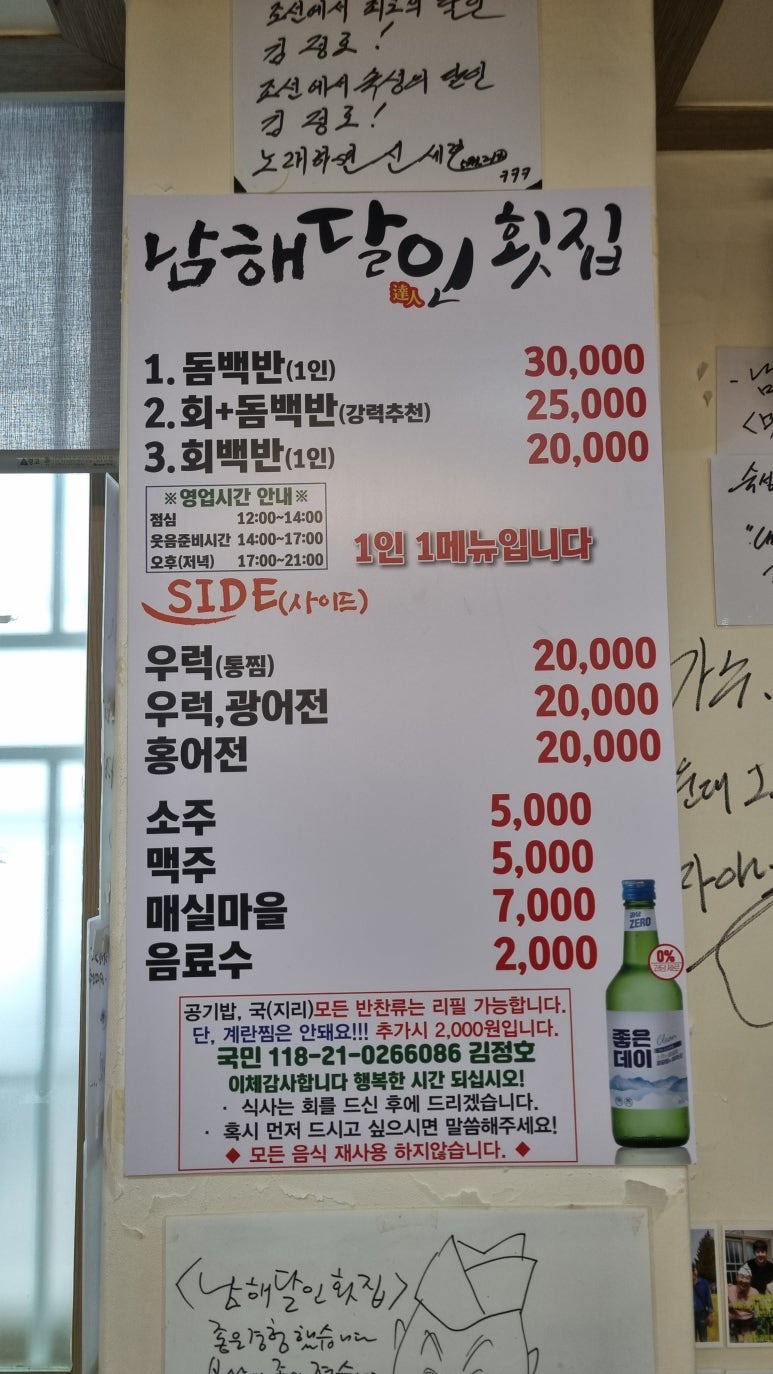 조선에서 최고의 달인
김 정호!
조선에서 숙성의 달인
김 정호!
노래하면 선 세련
ㅋㅋㅋ
남해달인횟집
達人
1. 돔백반(1인) 30,000
2. 회+돔백반(강력추천) 25,000
3. 회백반(1인) 20,000
※영업시간 안내※
점심 12:00~14:00
웃음준비시간 14:00~17:00
오후(저녁) 17:00~21:00
1인 1메뉴입니다
SIDE(사이드)
우럭(통찜) 20,000
우럭,광어전 20,000
홍어전 20,000
소주 5,000
맥주 5,000
매실마을 7,000
음료수 2,000
ZERO
0%
좋은
데이
Clean
공기밥, 국(지리)모든 반찬류는 리필 가능합니다.
단, 계란찜은 안돼요!!! 추가시 2,000원입니다.
국민 118-21-0266086 김정호
이체감사합니다 행복한 시간 되십시오!
· 식사는 회를 드신 후에 드리겠습니다.
· 혹시 먼저 드시고 싶으시면 말씀해주세요!
◆ 모든 음식 재사용 하지않습니다. ◆
<남해달인횟집>
좋은경험했습니다
가수.